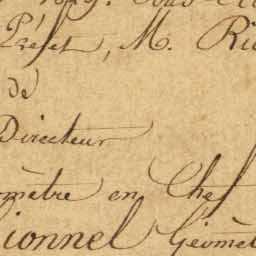 Préfet, M. Ric
de
Directeur
omètre en Chef
ionnel Géomèt